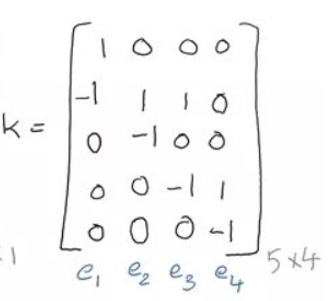 1 0 0 0
-1 1 1 0
K =
0 -1 0 0
0 0 -1 1
0 0 0 -1
5x4
e1 e2 e3 e4